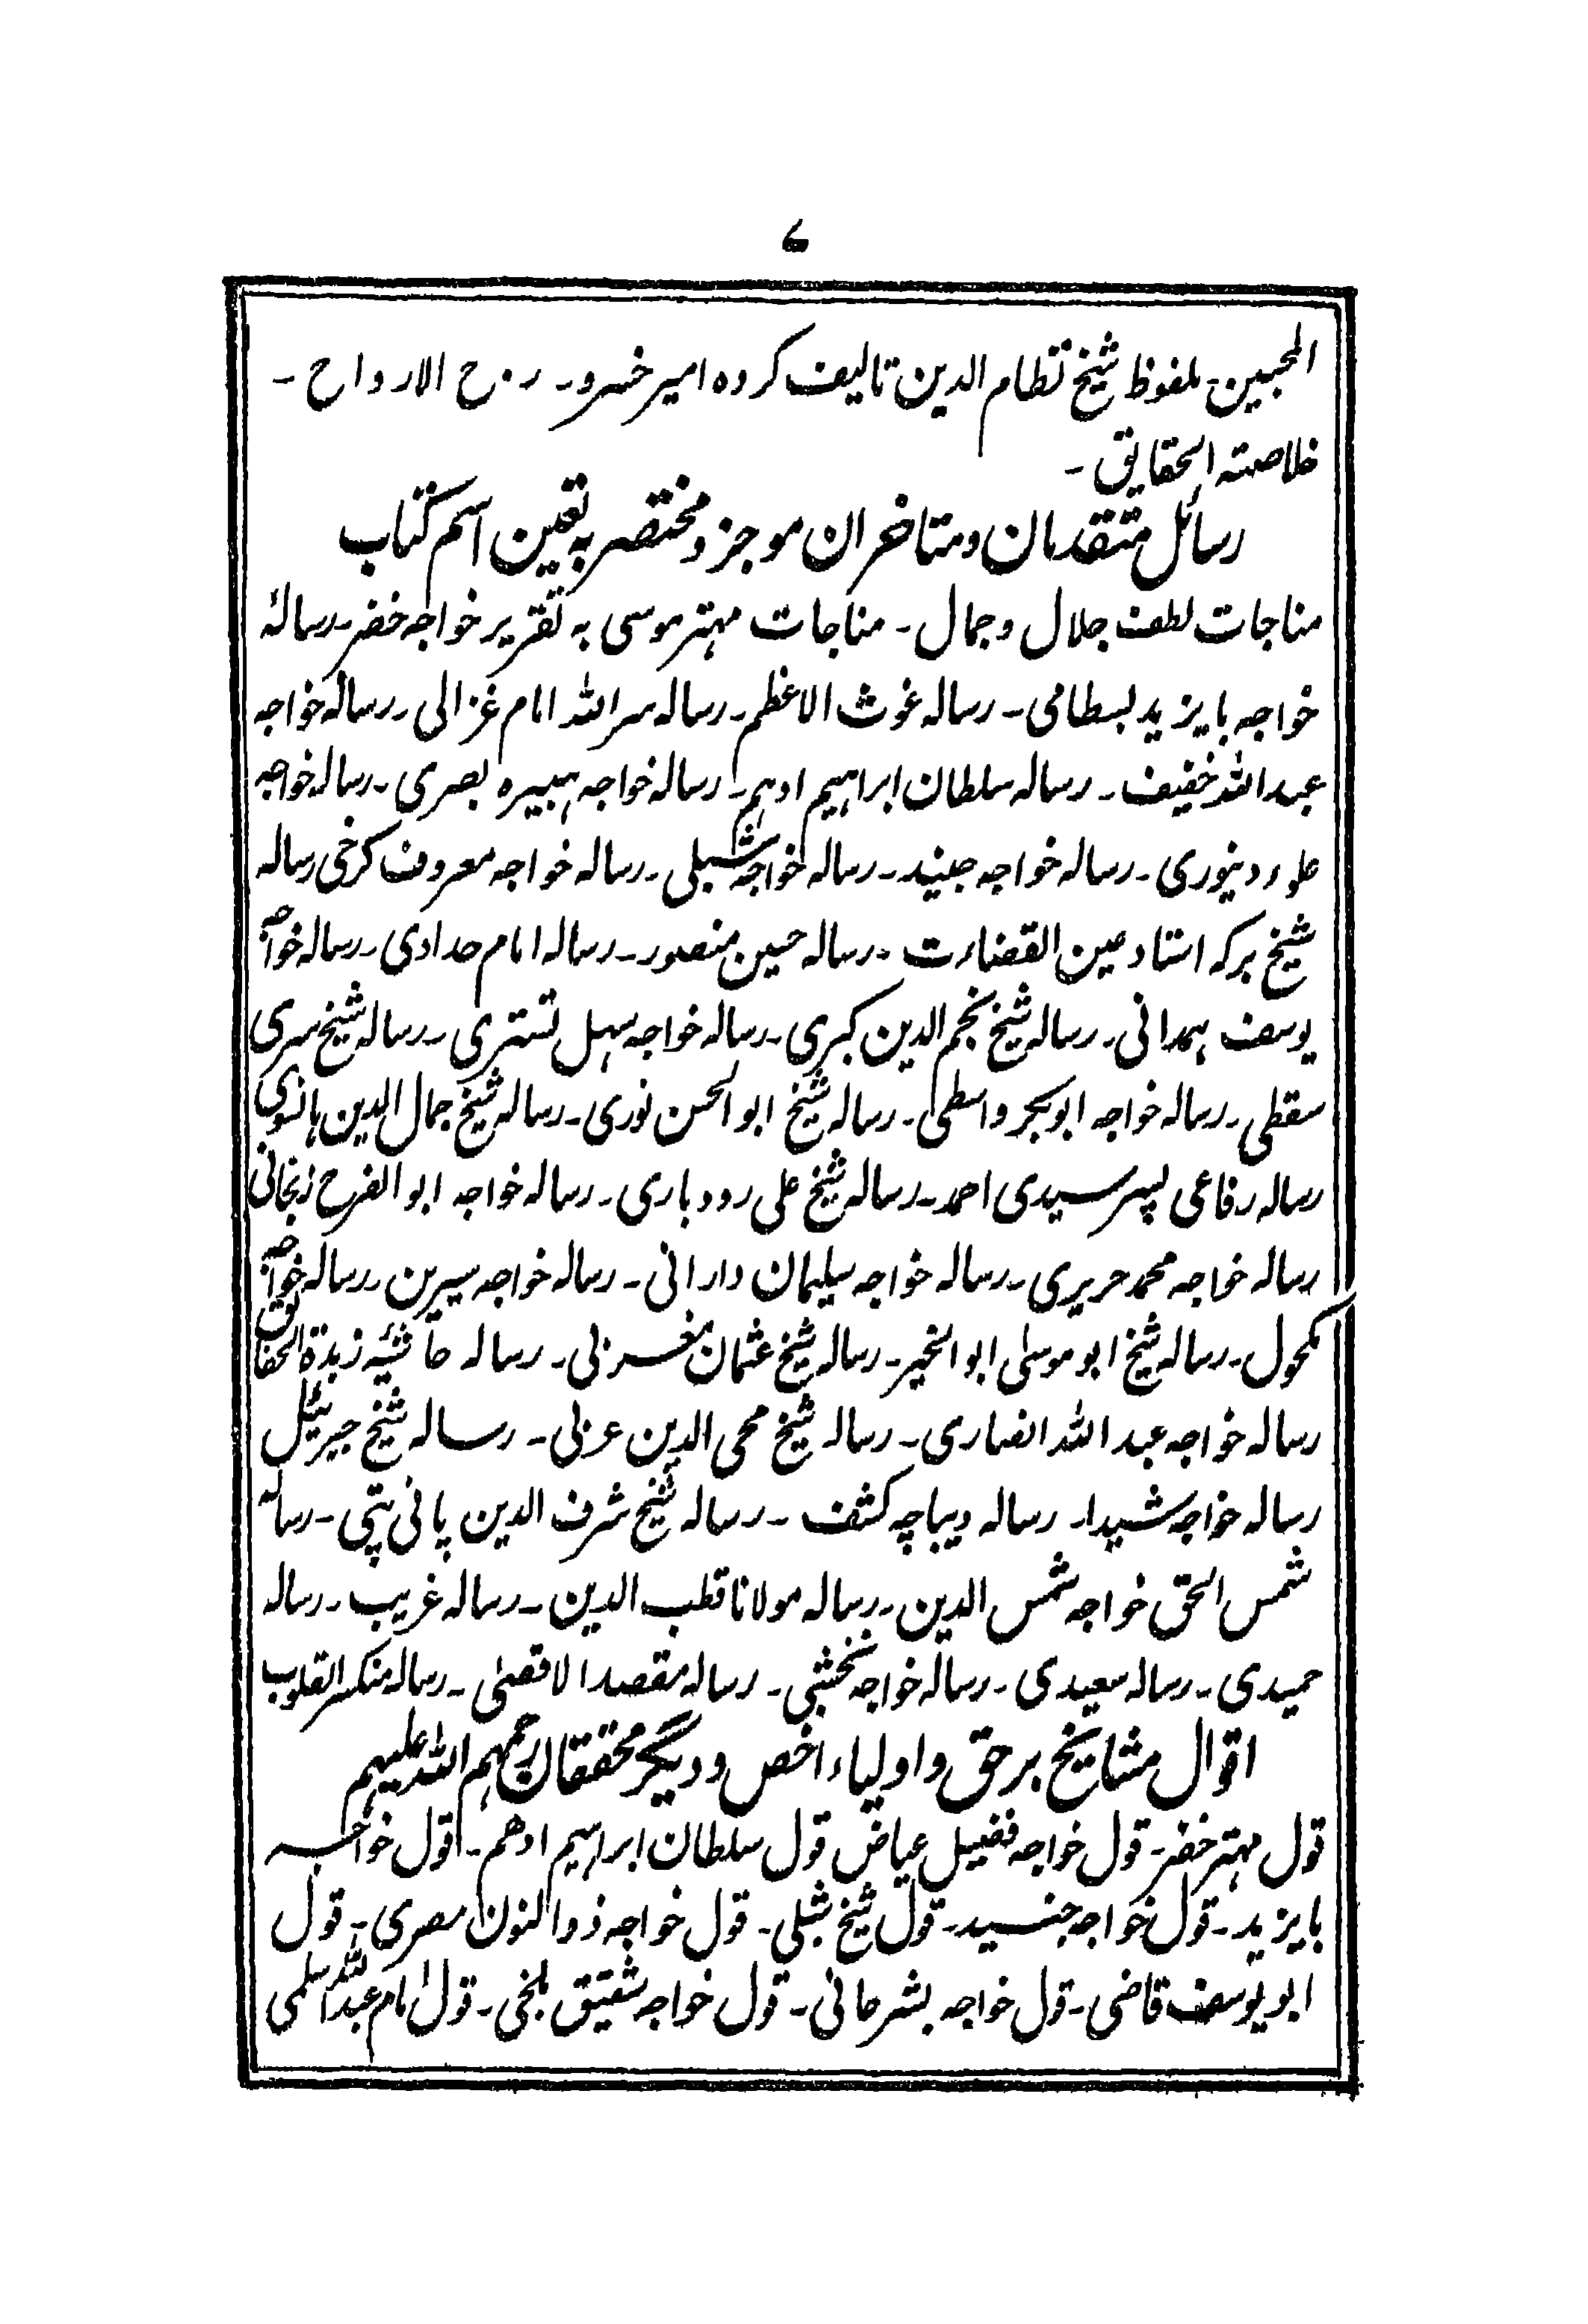 ۷
المحبین۔ ملفوظ شیخ نظام الدین تالیف کردہ امیر خسرو۔ روح الارواح۔
خلاصتہ الحقایق۔
رسائل متقدمان و متاخران موجز و مختصر بہ تعین اسم کتاب
مناجات لطف جلال و جمال۔ مناجات مہتر موسی بہ تقریر خواجہ خضر۔ رسالۂ
خواجہ بایزید بسطامی۔ رسالہ غوث الاعظم۔ رسالہ سراللہ امام غزالی۔ رسالہ خواجہ
عبداللہ خفیف۔ رسالہ سلطان ابراہیم ادہم۔ رسالہ خواجہ ہبیرہ بصری۔ رسالہ خواجہ
علوء دینوری۔ رسالہ خواجہ جنید۔ رسالہ خواجہ شبلی۔ رسالہ خواجہ معروف کرخی رسالہ
شیخ برکہ استاد عین القضاءت۔ رسالہ حسین منصور۔ رسالہ امام حدادی۔ رسالہ خواجہ
یوسف ہمدانی۔ رسالہ شیخ نجم الدین کبری۔ رسالہ خواجہ سہل تستری۔ رسالہ شیخ سری
سقطی۔ رسالہ خواجہ ابوبکر واسطی۔ رسالہ شیخ ابوالحسن نوری۔ رسالہ شیخ جمال الدین ہانسوی
رسالہ رفاعی پسر سیدی احمد۔ رسالہ شیخ علی رودباری۔ رسالہ خواجہ ابوالفرح زنجانی
رسالہ خواجہ محمد حریری۔ رسالہ خواجہ سلیمان دارانی۔ رسالہ خواجہ سیرین۔ رسالہ خواجہ
مکحول۔ رسالہ شیخ ابو موسیٰ ابوالخیر۔ رسالہ شیخ عثمان مغربی۔ رسالہ حاشیہ زبدۃ الحقائق
رسالہ خواجہ عبداللہ انصاری۔ رسالہ شیخ محی الدین عربی۔ رسالہ شیخ جبرئیل
رسالہ خواجہ شیدا۔ رسالہ دیباچہ کشف۔ رسالہ شیخ شرف الدین پانی پتی۔ رسالہ
شمس الحق خواجہ شمس الدین۔ رسالہ مولانا قطب الدین۔ رسالہ غریب۔ رسالہ
حمیدی۔ رسالہ سعیدی۔ رسالہ خواجہ نخشبی۔ رسالہ مقصد الاقصیٰ۔ رسالہ منکسر القلوب
اقوال مشایخ برحق و اولیاء اخص و دیگر محققان رحمہم اللہ علیہم
قول مہتر خضر۔ قول خواجہ فضیل عیاض قول سلطان ابراہیم ادھم۔ قول خواجہ
بایزید۔ قول خواجہ جنید۔ قول شیخ شبلی۔ قول خواجہ ذوالنون مصری۔ قول
ابو یوسف قاضی۔ قول خواجہ بشر حافی۔ قول خواجہ شقیق بلخی۔ قول امام عبداللہ سلمی